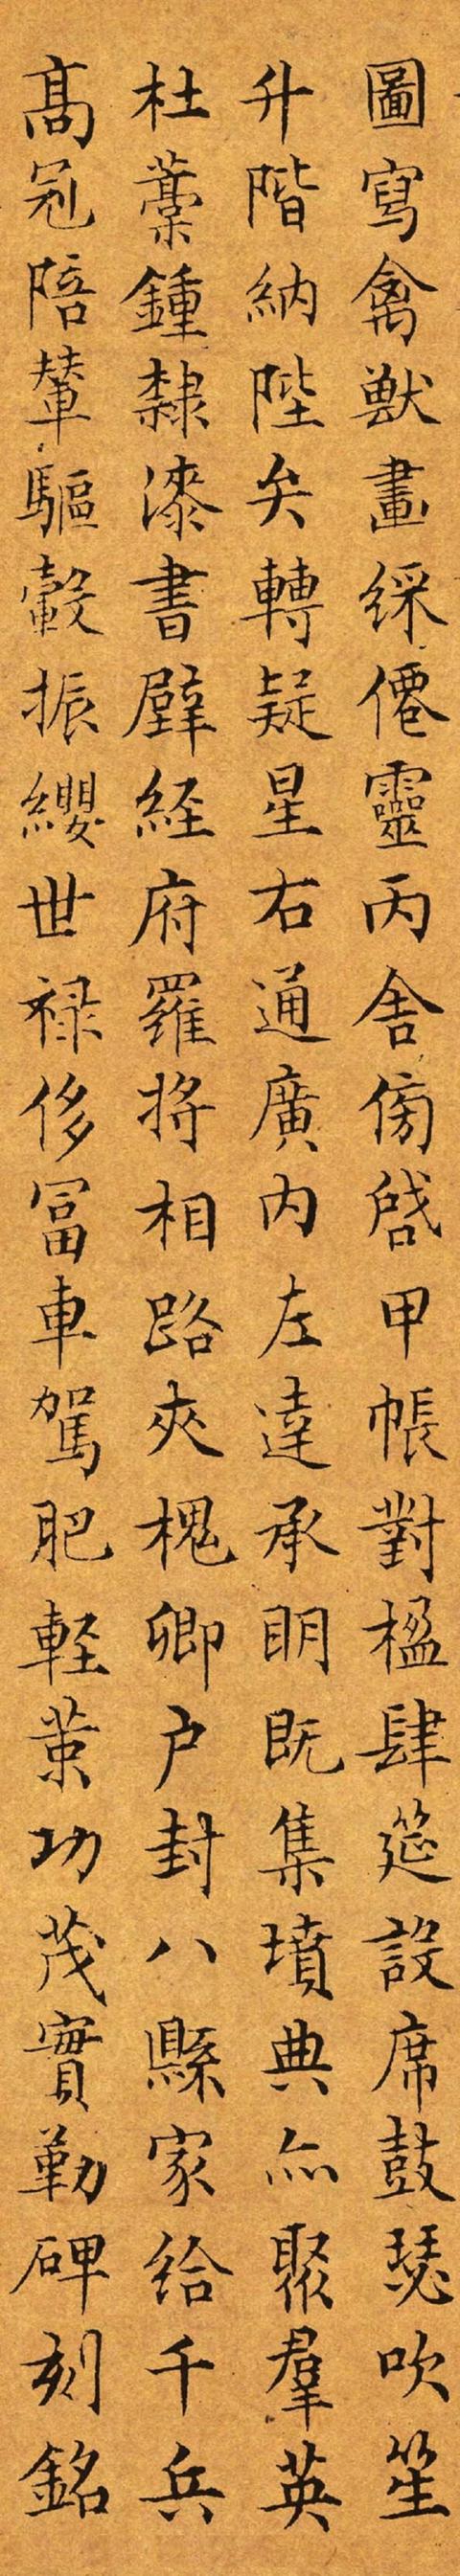 圖寫禽獸畫綵僊靈丙舍傍啓甲帳對楹肆筵設席鼓瑟吹笙
升階納陛弁轉疑星右通廣内左達承明既集墳典亦聚羣英
杜藁鍾隸漆書壁経府羅将相路夾槐卿户封八縣家给千兵
髙冠陪輦驅轂振纓世禄侈冨車駕肥軽策功茂實勒碑刻銘